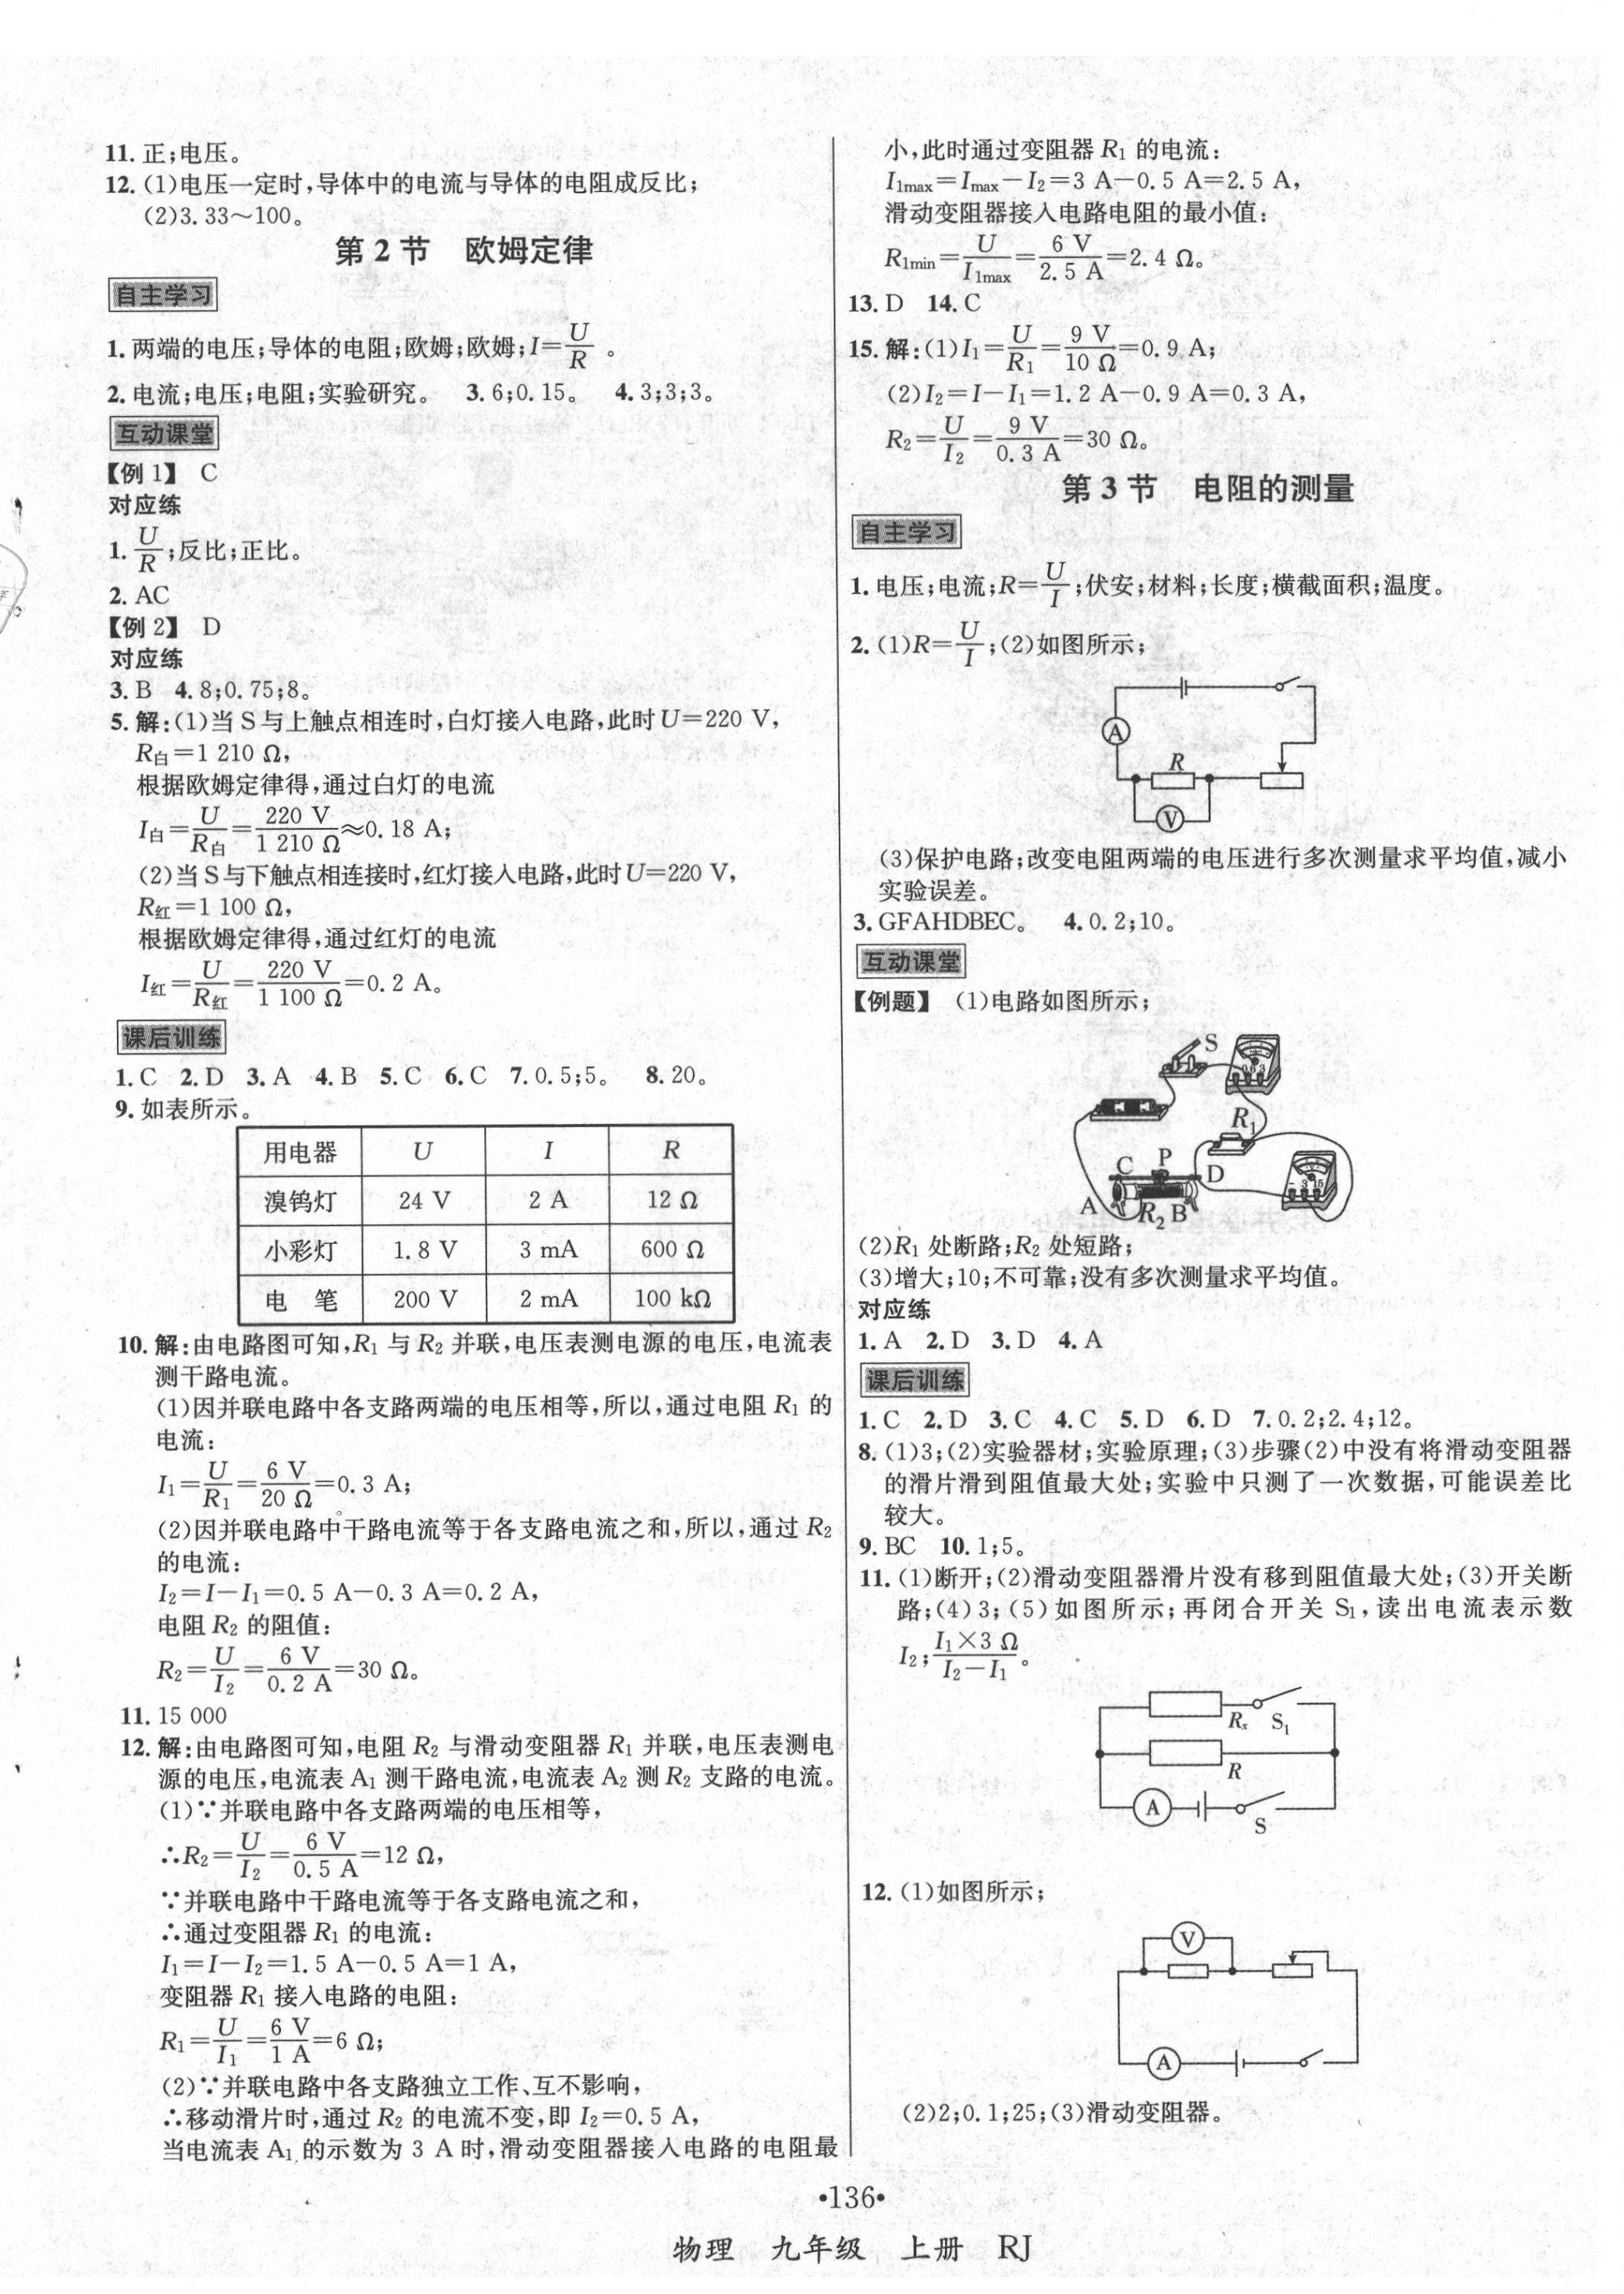 11. 正;电压。
12. (1)电压一定时,导体中的电流与导体的电阻成反比;
(2)3.33～100。
第 2 节　欧姆定律
自主学习
1. 两端的电压;导体的电阻;欧姆;欧姆;I=U/R 。
2. 电流;电压;电阻;实验研究。　3. 6;0.15。　4. 3;3;3。
互动课堂
【例 1】 C
对应练
1. U/R;反比;正比。
2. AC
【例 2】 D
对应练
3. B　4. 8;0.75;8。
5. 解:(1)当 S 与上触点相连时,白灯接入电路,此时 U=220 V,
R白=1 210 Ω,
根据欧姆定律得,通过白灯的电流
I白=U/R白=220 V/1 210 Ω≈0.18 A;
(2)当 S 与下触点相连接时,红灯接入电路,此时 U=220 V,
R红=1 100 Ω,
根据欧姆定律得,通过红灯的电流
I红=U/R红=220 V/1 100 Ω=0.2 A。
课后训练
1. C　2. D　3. A　4. B　5. C　6. C　7. 0.5;5。　8. 20。
9. 如表所示。
用电器　U　I　R
溴钨灯　24 V　2 A　12 Ω
小彩灯　1.8 V　3 mA　600 Ω
电　笔　200 V　2 mA　100 kΩ
10. 解:由电路图可知,R₁ 与 R₂ 并联,电压表测电源的电压,电流表
测干路电流。
(1)因并联电路中各支路两端的电压相等,所以,通过电阻 R₁ 的
电流:
I₁=U/R₁=6 V/20 Ω=0.3 A;
(2)因并联电路中干路电流等于各支路电流之和,所以,通过 R₂
的电流:
I₂=I−I₁=0.5 A−0.3 A=0.2 A,
电阻 R₂ 的阻值:
R₂=U/I₂=6 V/0.2 A=30 Ω。
11. 15 000
12. 解:由电路图可知,电阻 R₂ 与滑动变阻器 R₁ 并联,电压表测电
源的电压,电流表 A₁ 测干路电流,电流表 A₂ 测 R₂ 支路的电流。
(1)∵并联电路中各支路两端的电压相等,
∴R₂=U/I₂=6 V/0.5 A=12 Ω,
∵并联电路中干路电流等于各支路电流之和,
∴通过变阻器 R₁ 的电流:
I₁=I−I₂=1.5 A−0.5 A=1 A,
变阻器 R₁ 接入电路的电阻:
R₁=U/I₁=6 V/1 A=6 Ω;
(2)∵并联电路中各支路独立工作、互不影响,
∴移动滑片时,通过 R₂ 的电流不变,即 I₂=0.5 A,
当电流表 A₁ 的示数为 3 A 时,滑动变阻器接入电路的电阻最
小,此时通过变阻器 R₁ 的电流:
I1max=Imax−I₂=3 A−0.5 A=2.5 A,
滑动变阻器接入电路电阻的最小值:
R1min=U/I1max=6 V/2.5 A=2.4 Ω。
13. D　14. C
15. 解:(1)I₁=U/R₁=9 V/10 Ω=0.9 A;
(2)I₂=I−I₁=1.2 A−0.9 A=0.3 A,
R₂=U/I₂=9 V/0.3 A=30 Ω。
第 3 节　电阻的测量
自主学习
1. 电压;电流;R=U/I;伏安;材料;长度;横截面积;温度。
2. (1)R=U/I;(2)如图所示;
A
R
V
(3)保护电路;改变电阻两端的电压进行多次测量求平均值,减小
实验误差。
3. GFAHDBEC。　4. 0.2;10。
互动课堂
【例题】 (1)电路如图所示;
S
R₁
C P D
A R₂ B
(2)R₁ 处断路;R₂ 处短路;
(3)增大;10;不可靠;没有多次测量求平均值。
对应练
1. A　2. D　3. D　4. A
课后训练
1. C　2. D　3. C　4. C　5. D　6. D　7. 0.2;2.4;12。
8. (1)3;(2)实验器材;实验原理;(3)步骤(2)中没有将滑动变阻器
的滑片滑到阻值最大处;实验中只测了一次数据,可能误差比
较大。
9. BC　10. 1;5。
11. (1)断开;(2)滑动变阻器滑片没有移到阻值最大处;(3)开关断
路;(4)3;(5)如图所示;再闭合开关 S₁,读出电流表示数
I₂;I₁×3 Ω/I₂−I₁。
Rₓ S₁
R
A S
12. (1)如图所示;
V
A
(2)2;0.1;25;(3)滑动变阻器。
•136•
物理　九年级　上册　RJ